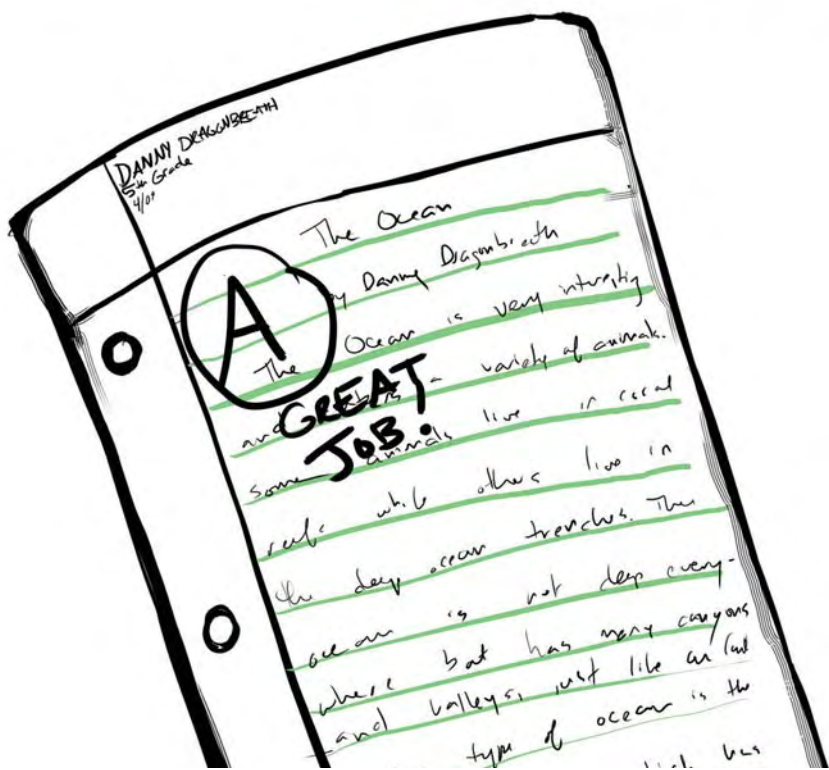 DANNY DRAGONBREATH
5th Grade
4/09
The Ocean
by Danny Dragonbreath
A
The Ocean is very interesting
GREAT
and a variety of animals.
JOB!
some animals live in coral
reefs while others live in
the deep ocean trenches. The
ocean is not deep every-
where but has many canyons
and valleys, just like on land
type of ocean is the
which has